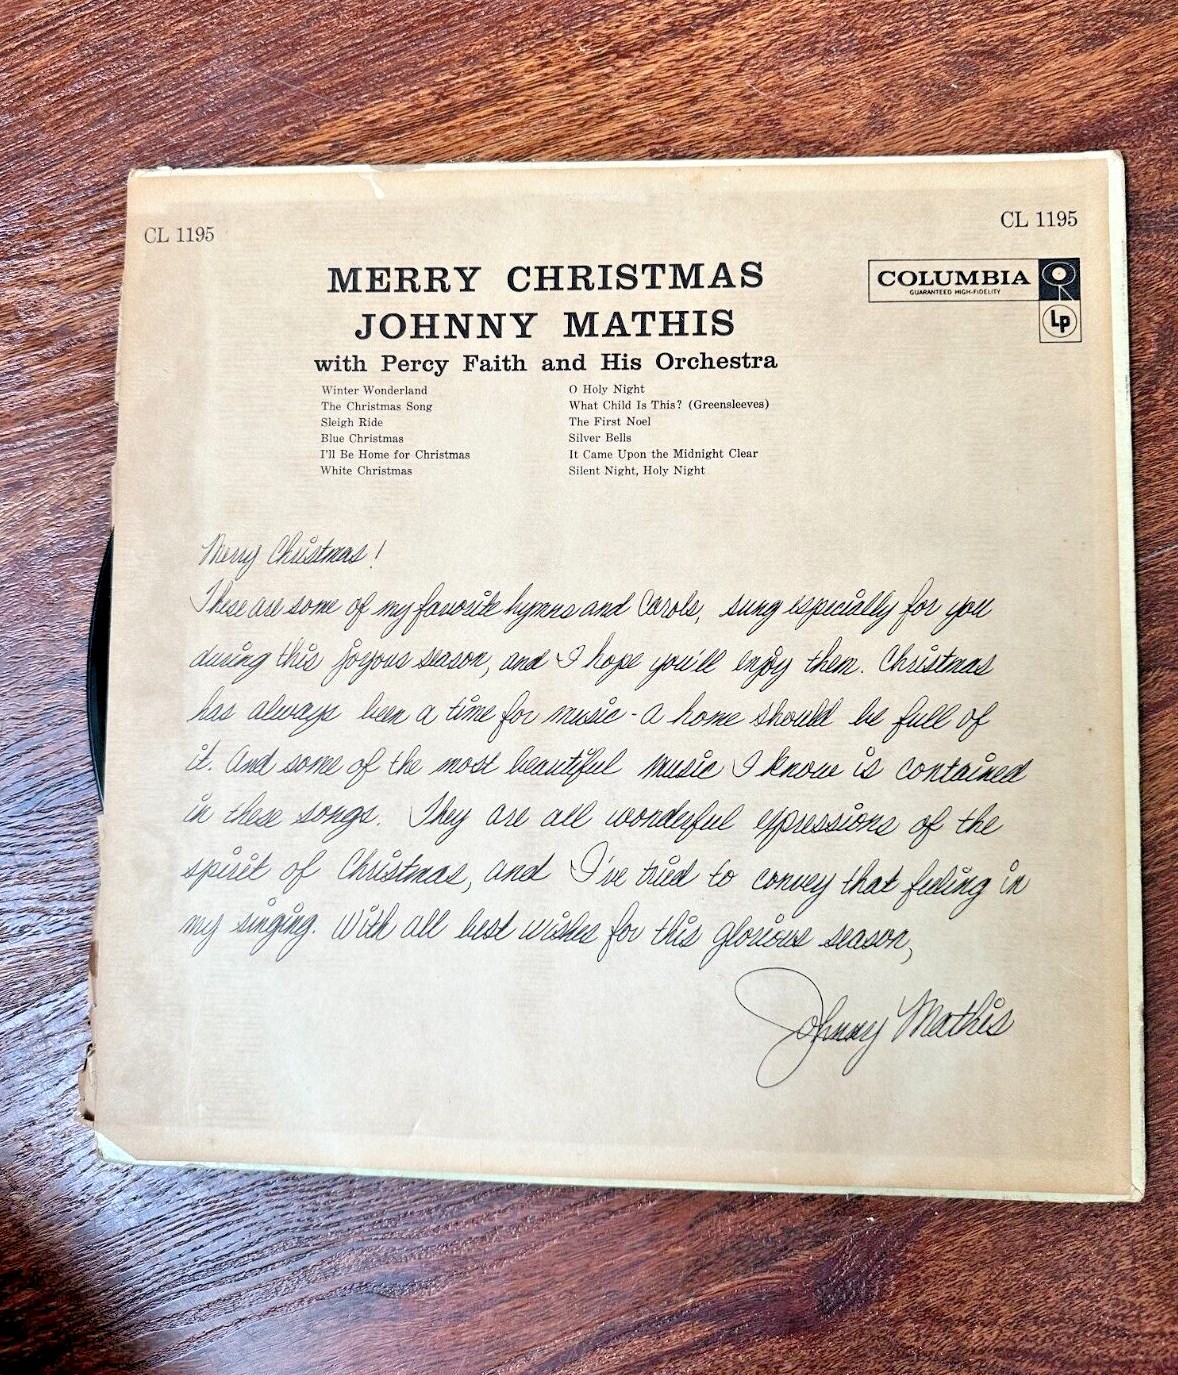 CL 1195
CL 1195
COLUMBIA
GUARANTEED HIGH-FIDELITY
Lp
MERRY CHRISTMAS
JOHNNY MATHIS
with Percy Faith and His Orchestra
Winter Wonderland
The Christmas Song
Sleigh Ride
Blue Christmas
I'll Be Home for Christmas
White Christmas
O Holy Night
What Child Is This? (Greensleeves)
The First Noel
Silver Bells
It Came Upon the Midnight Clear
Silent Night, Holy Night
Merry Christmas!
These are some of my favorite hymns and Carols, sung especially for you
during this joyous season, and I hope you'll enjoy them. Christmas
has always been a time for music - a home should be full of
it. And some of the most beautiful music I know is contained
in these songs. They are all wonderful expressions of the
spirit of Christmas, and I've tried to convey that feeling in
my singing. With all best wishes for this glorious season,
Johnny Mathis